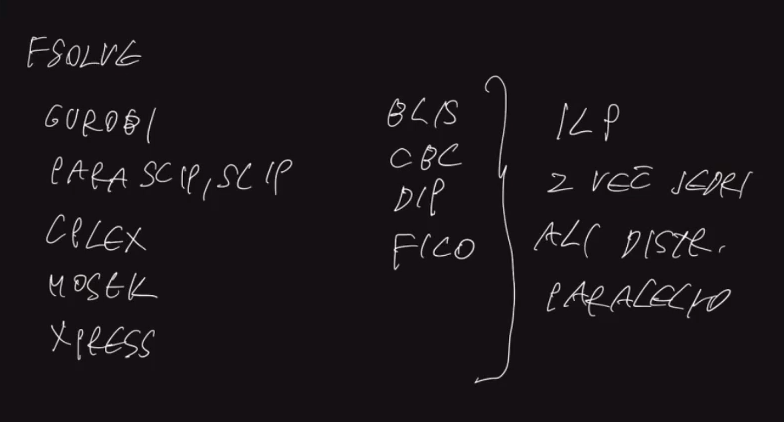 FSOLVE
GUROBI
PARASCIP, SCIP
CPLEX
MOSEK
XPRESS
BLIS
CBC
DIP
FICO
ILP
Z VEČ JEDRI
ALI DISTR.
PARALELNO